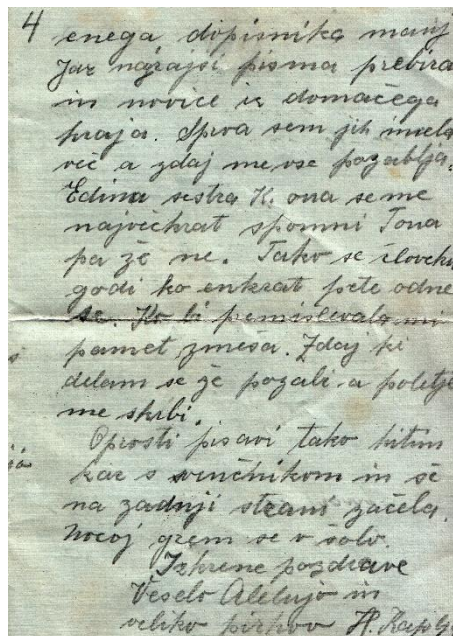 4
enega dopisnika manj
Jaz najrajši pisma prebira
in novice iz domačega
kraja. Sprva sem jih imela
več a zdaj me vse pozablja.
Edina sestra K. ona se me
največkrat spomni Tona
pa že ne. Tako se človeku
godi ko enkrat pete odne
se. Ko bi premislevala mi
pamet zmeša. Zdaj ki
delam se že pozabi a poletje
me skrbi.
Oprosti pisavi tako hitim
kar s svinčnikom in še
na zadnji strani začela.
Nocoj grem še v šolo.
Iskrene pozdrave
Veselo Alelujo in
veliko pirhov